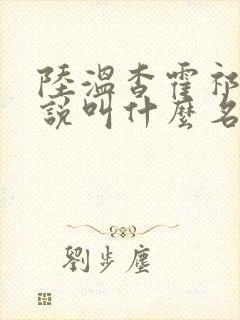 陸溫杳霍祁
說叫什麼名
劉步塵